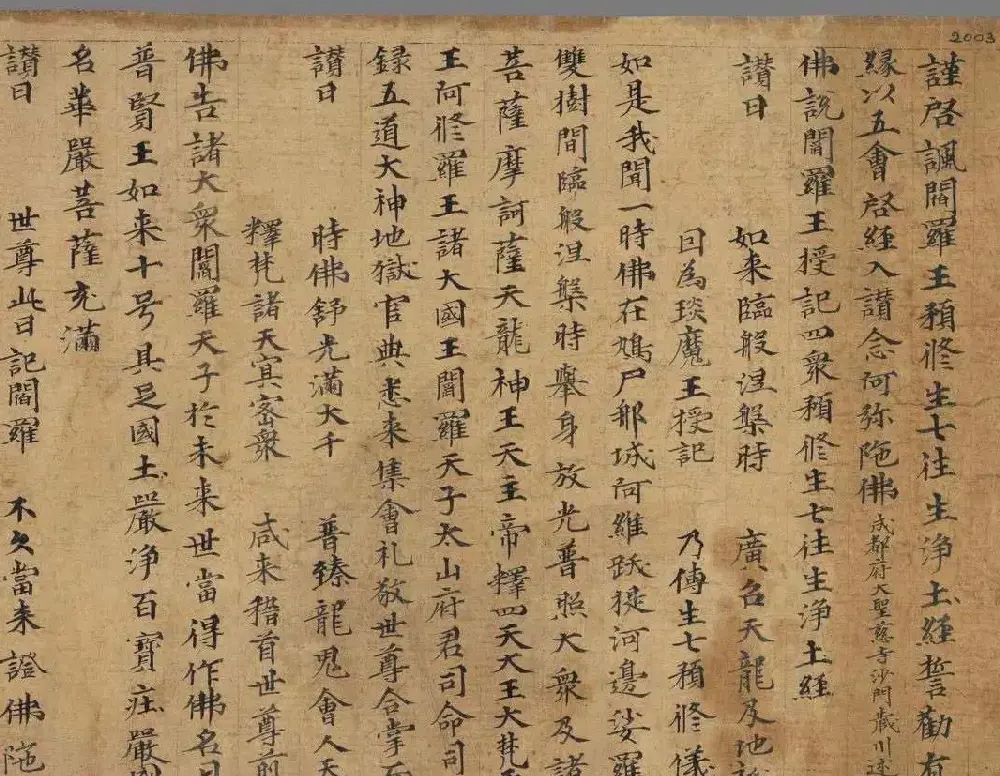 2003
謹啓諷閻羅王預修生七往生浄土經誓勸有
緣以五會啓經入讃念阿弥陁佛 成都府大聖慈寺沙門藏川述
佛説閻羅王授記四衆預修生七往生浄土經
讃曰 如来臨般涅槃時 廣召天龍及地
囙為琰魔王授記 乃傳生七預修儀
如是我聞一時佛在鳩尸那城阿維跋提河邊娑羅
雙樹間臨般涅槃時舉身放光普照大衆及諸
菩薩摩訶薩天龍神王天主帝釋四天大王大梵
王阿修羅王諸大國王閻羅天子太山府君司命司
録五道大神地獄官典悉来集會礼敬世尊合掌而
讃曰 時佛舒光滿大千 普臻龍鬼會人天
釋梵諸天冥密衆 咸来稽首世尊前
佛告諸大衆閻羅天子於未来世當得作佛名曰
普賢王如来十号具足國土嚴浄百寶莊嚴國
名華嚴菩薩充滿
讃曰 世尊此日記閻羅 不久當来證佛陁